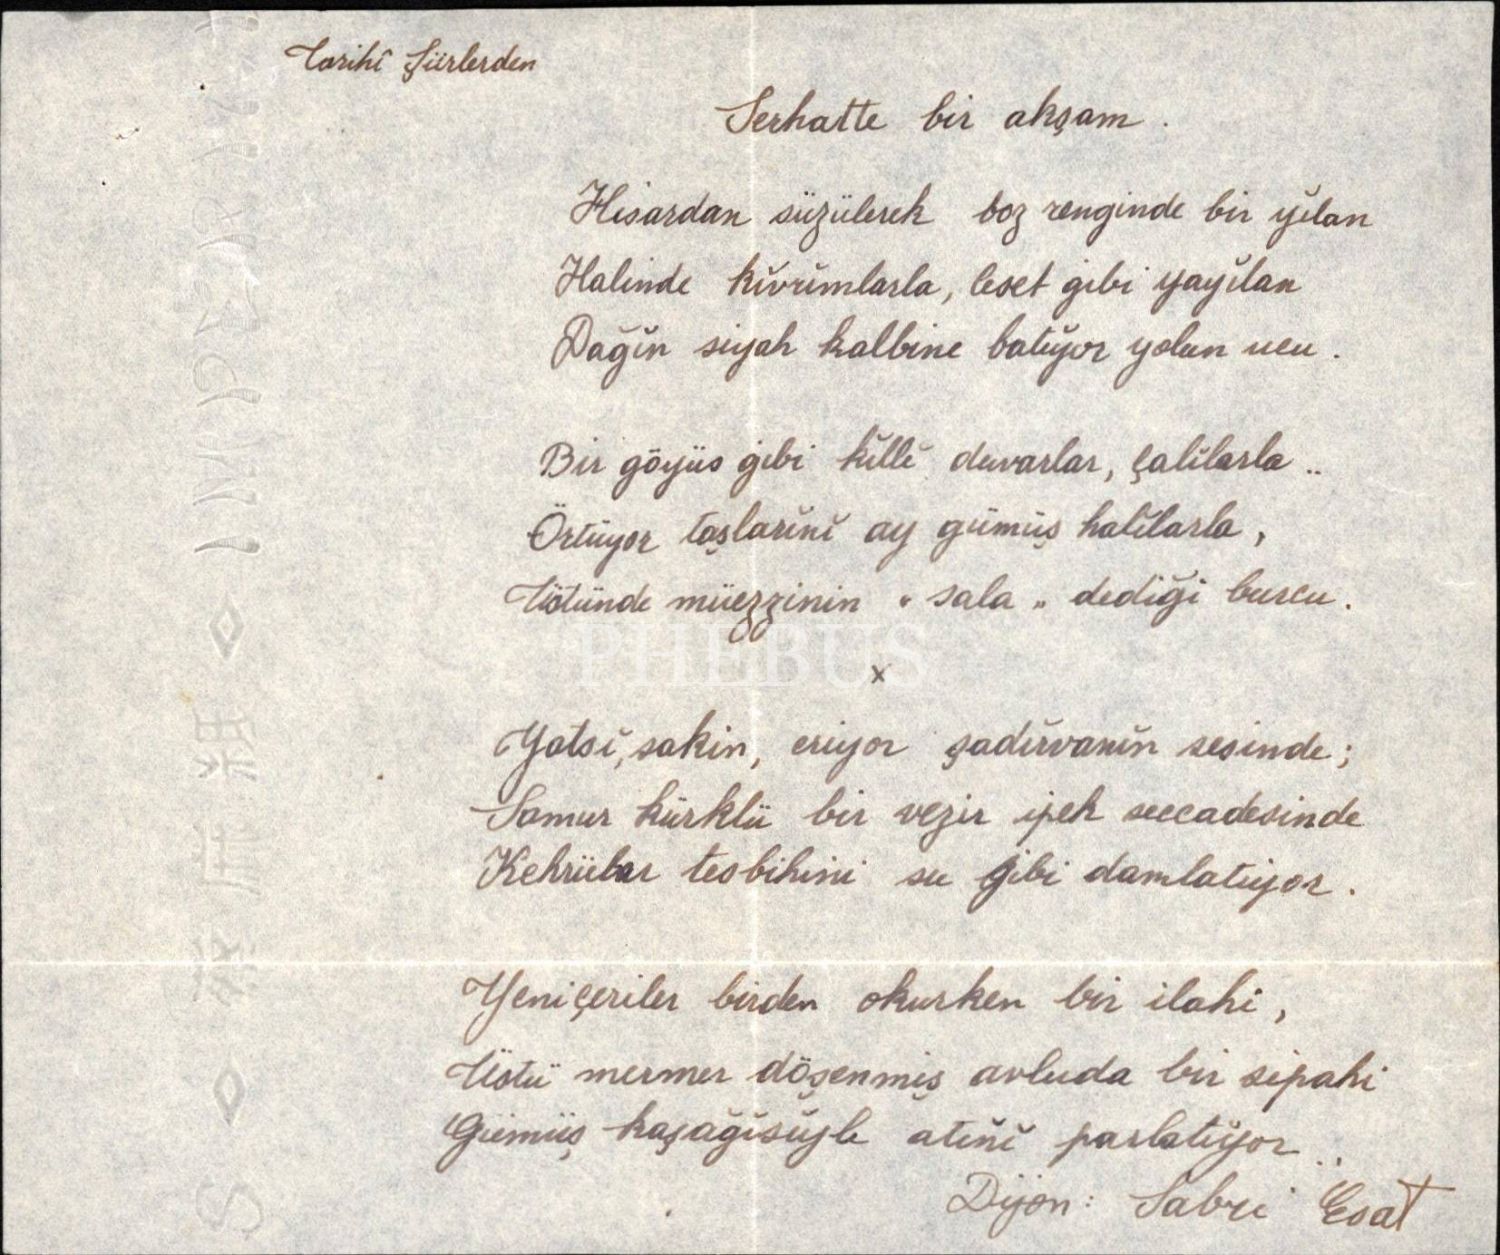 Tarihî Şiirlerden
Serhatte bir akşam.
Hisardan süzülerek boz renginde bir yılan
Halinde kıvrımlarla, ceset gibi yayılan
Dağın siyah kalbine batıyor yolun ucu.
Bir göyüs gibi kıllı duvarlar, çalılarla..
Örtüyor taşlarını ay gümüş halılarla,
Üstünde müezzinin "sala" dediği burcu.
PHEBUS
x
Yatsı, sakin, eriyor şadırvanın sesinde;
Samur kürklü bir vezir ipek seccadesinde
Kehrübar tesbihini su gibi damlatıyor.
Yeniçeriler birden okurken bir ilahi,
Üstü mermer döşenmiş avluda bir sipahi
Gümüş kaşağısıyle atını parlatıyor..
Dijon: Sabri Esat